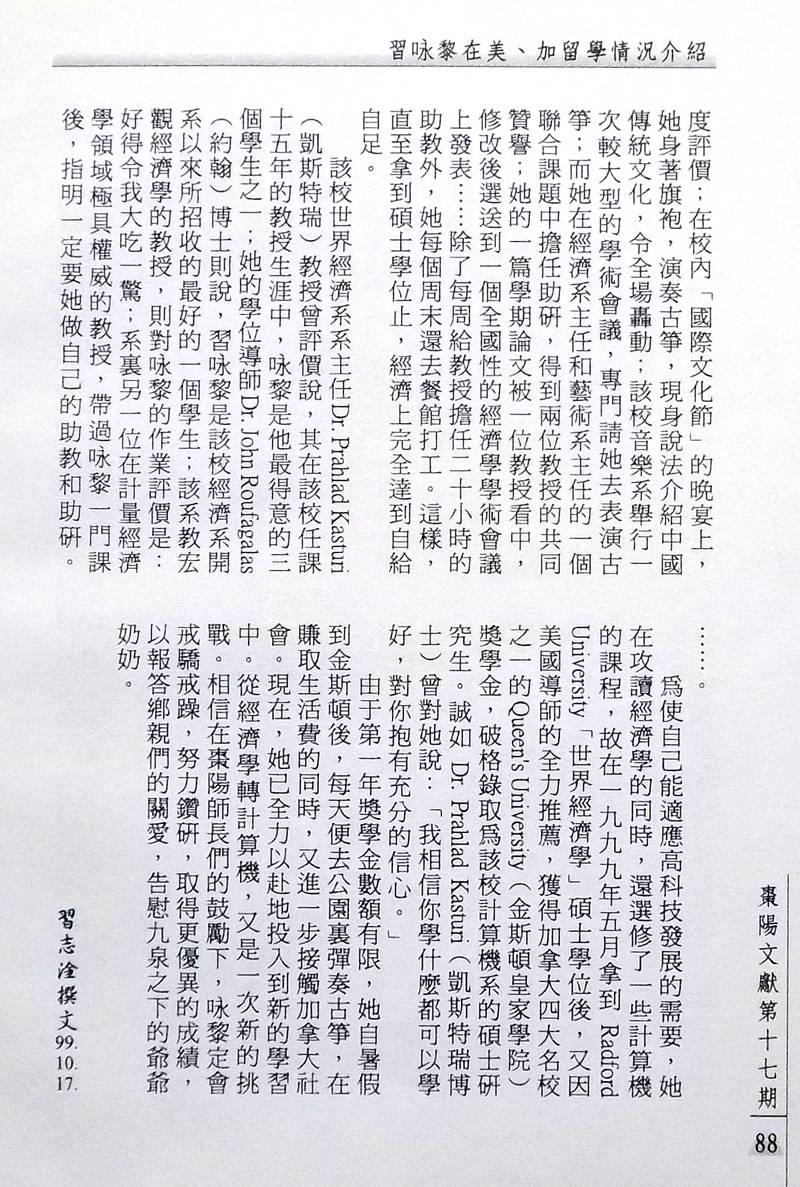 習咏黎在美、加留學情況介紹
度評價；在校內「國際文化節」的晚宴上，
她身著旗袍，演奏古箏，現身說法介紹中國
傳統文化，令全場轟動；該校音樂系舉行一
次較大型的學術會議，專門請她去表演古
箏；而她在經濟系主任和藝術系主任的一個
聯合課題中擔任助研，得到兩位教授的共同
贊譽；她的一篇學期論文被一位教授看中，
修改後選送到一個全國性的經濟學學術會議
上發表……除了每周給教授擔任二十小時的
助教外，她每個周末還去餐館打工。這樣，
直至拿到碩士學位止，經濟上完全達到自給
自足。
該校世界經濟系系主任 Dr. Prahlad Kasturi
（凱斯特瑞）教授曾評價說，其在該校任課
十五年的教授生涯中，咏黎是他最得意的三
個學生之一；她的學位導師 Dr. John Roufagalas
（約翰）博士則說，習咏黎是該校經濟系開
系以來所招收的最好的一個學生；該系教宏
觀經濟學的教授，則對咏黎的作業評價是：
好得令我大吃一驚；系裏另一位在計量經濟
學領域極具權威的教授，帶過咏黎一門課
後，指明一定要她做自己的助教和助研。
……。
爲使自己能適應高科技發展的需要，她
在攻讀經濟學的同時，還選修了一些計算機
的課程，故在一九九九年五月拿到 Radford
University「世界經濟學」碩士學位後，又因
美國導師的全力推薦，獲得加拿大四大名校
之一的Queen's University（金斯頓皇家學院）
獎學金，破格錄取爲該校計算機系的碩士研
究生。誠如 Dr. Prahlad Kasturi（凱斯特瑞博
士）曾對她說：「我相信你學什麼都可以學
好，對你抱有充分的信心。」
由于第一年獎學金數額有限，她自暑假
到金斯頓後，每天便去公園裏彈奏古箏，在
賺取生活費的同時，又進一步接觸加拿大社
會。現在，她已全力以赴地投入到新的學習
中。從經濟學轉計算機，又是一次新的挑
戰。相信在棗陽師長們的鼓勵下，咏黎定會
戒驕戒躁，努力鑽研，取得更優異的成績，
以報答鄉親們的關愛，告慰九泉之下的爺爺
奶奶。
習志淦撰文 99. 10. 17.
棗陽文獻第十七期
88